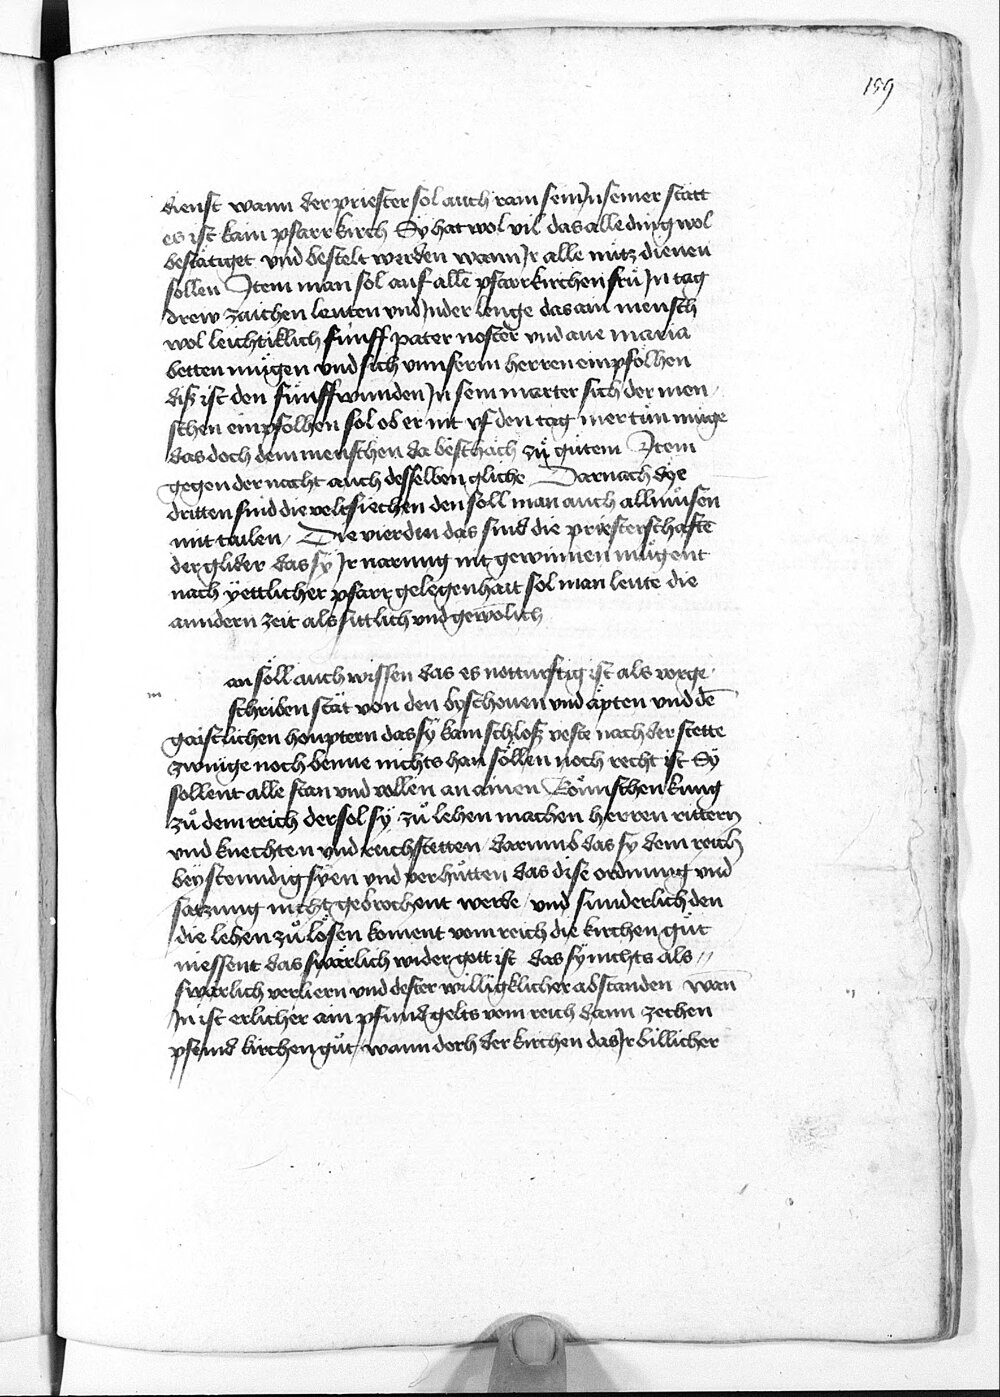 159
dienst wann der priester sol auch kain sein Jn seiner statt
es ist kain pfarrkirch Sÿ hat wol vil das alle ding wol
bestätiget vnd bestelt werden wann Jr alle nutz dienen
sollen Jtem man sol auf alle pfarrkirchen frü Jn tag
drew zaichen leuten vnd Jn der lenge das ain mensch
wol leichtiklich fünff pater noster vnd aue maria
betten mügen vnd sich vnnserm herren empfolhen
diß ist den fünff wunden Jn sein marter sich der men
schen empfolhen sol ob er nit vf den tag mer tün müge
das doch dem menschen da beschäch zů gütem Jtem
gegen der nacht auch desselben gliche Darnach dÿe
dritten sind die veltsiechen den soll man auch allmüsen
mit tailen / Die vierden das sind die priesterschafte
der glider das sÿ Jr narung nit gewinnen mügent
nach yettlicher pfarr gelegenhait sol man leute die
anndern zeit als sittlich vnd gewolich
an söll auch wissen das es notturftig ist als vorge
m
schriben stät von den byschouen vnd äpten vnd dē
gaistlichen houptern das sÿ kain schloß veste nach der stette
zwinge noch benne nichts han söllen noch recht ist Sÿ
sollent alle stan vnd vollen an ainen Römischen kung
zů dem reich der sol sÿ zů lehen machen herren rittern
vnd knechten vnd reichstetten darumb das sy dem reich
beÿstenndig sÿen vnd verhůtten das dise ordnung vnd
satzung nicht gebrochent werde / vnd sunderlich den
die lehen zů lösen koment vom reich die kirchen gut
niessent das swärlich wider gott ist das sÿ nichts als //
swarlich verliern vnd dester williglicher abstanden wan
Jn ist erlicher ain pfund gelts vom reich dann zechen
pfund kirchen gůt / wann doch der kirchen das Jr billicher